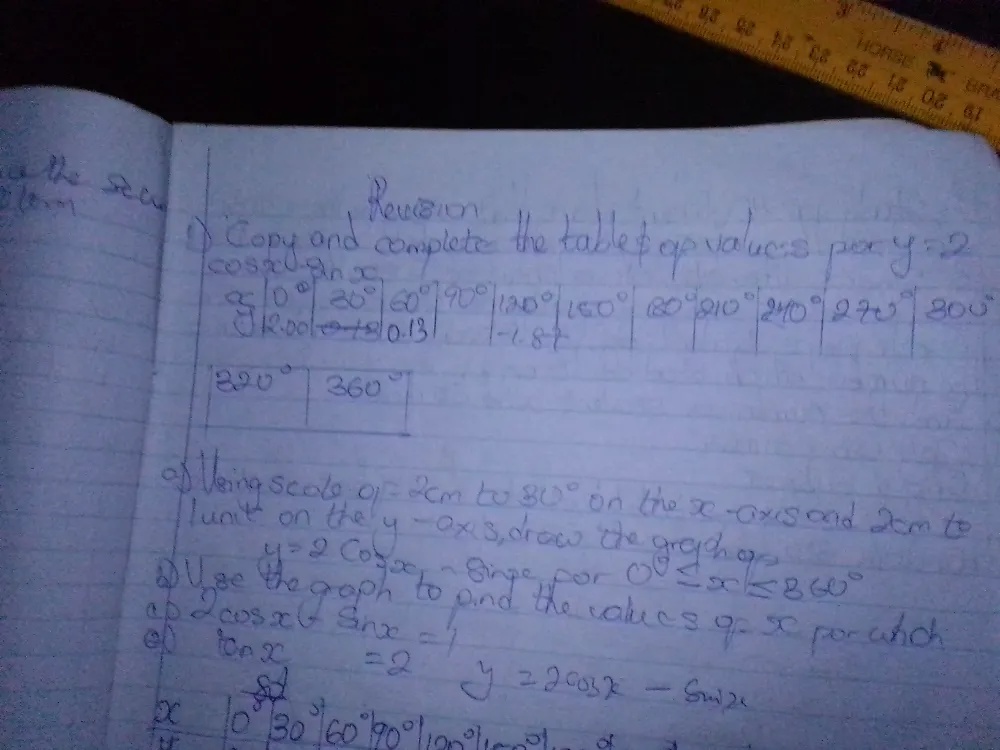 19 20 21 22 23 24 25 26
the
Revision
1) Copy and complete the table of values for y = 2
cosx - sin x
x 0° 30° 60° 90° 120° 150° 180° 210° 240° 270° 300°
y 2.00 0.13 -1.87
320° 360°
a) Using scale of 2cm to 30° on the x-axis and 2cm to
1 unit on the y-axis, draw the graph of
y = 2 cosx - sinx for 0° ≤ x ≤ 360°
2) Use the graph to find the values of x for which
a) 2cosx - Sinx = 1
tan x = 2 y = 2cosx - Sinx
Sol
x 0° 30° 60° 90° 120° 150°